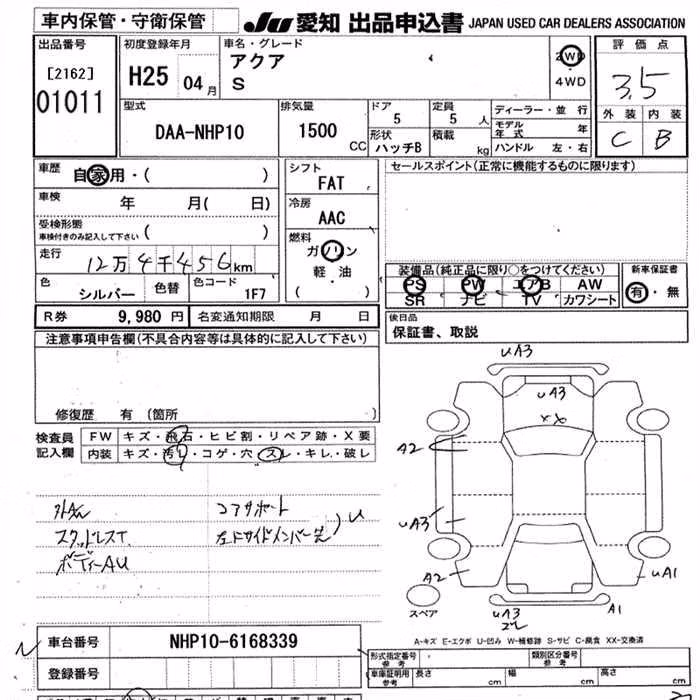 車内保管・守衛保管
JU 愛知 出品申込書 JAPAN USED CAR DEALERS ASSOCIATION
出品番号
[2162]
01011
初度登録年月
H25 04 月
車名・グレード
アクア
S
2WD
4WD
評価点
3.5
外装 内装
C B
型式
DAA-NHP10
排気量
1500 CC
ドア
5
定員
5 人
形状
ハッチB
積載
kg
ディーラー・並行
モデル年式 年
ハンドル 左・右
車歴
自家用・( )
車検 年 月( 日)
受検形態
車検付きのみ記入して下さい ( )
走行
12万4千456km
色
シルバー
色替
色コード
1F7
シフト
FAT
冷房
AAC
燃料
ガソリン
軽・油
( )
セールスポイント(正常に機能するものに限ります)
装備品(純正品に限り○をつけてください)
PS PW エアB AW
SR ナビ TV カワシート
新車保証書
有・無
R券 9,980 円
名変通知期限 月 日
後日品
保証書、取説
注意事項申告欄(不具合内容等は具体的に記入して下さい)
修復歴 有 (箇所
検査員
記入欄
FW キズ・飛石・ヒビ割・リペア跡・X要
内装 キズ・汚れ・コゲ・穴・スレ・キレ・破レ
コアサポート
スタッドレスT
左FサイドメンバーU
ボディーAU
UA3
UA3
XX
A2
UA3
A2
UA1
UA3
A1
スペア
A-キズ E-エクボ U-凹み W-補修跡 S-サビ C-腐食 XX-交換済
車台番号
NHP10-6168339
登録番号
形式指定番号
参考
類別区分番号
参考
車庫証明用
参考
長さ cm 幅 cm 高さ cm